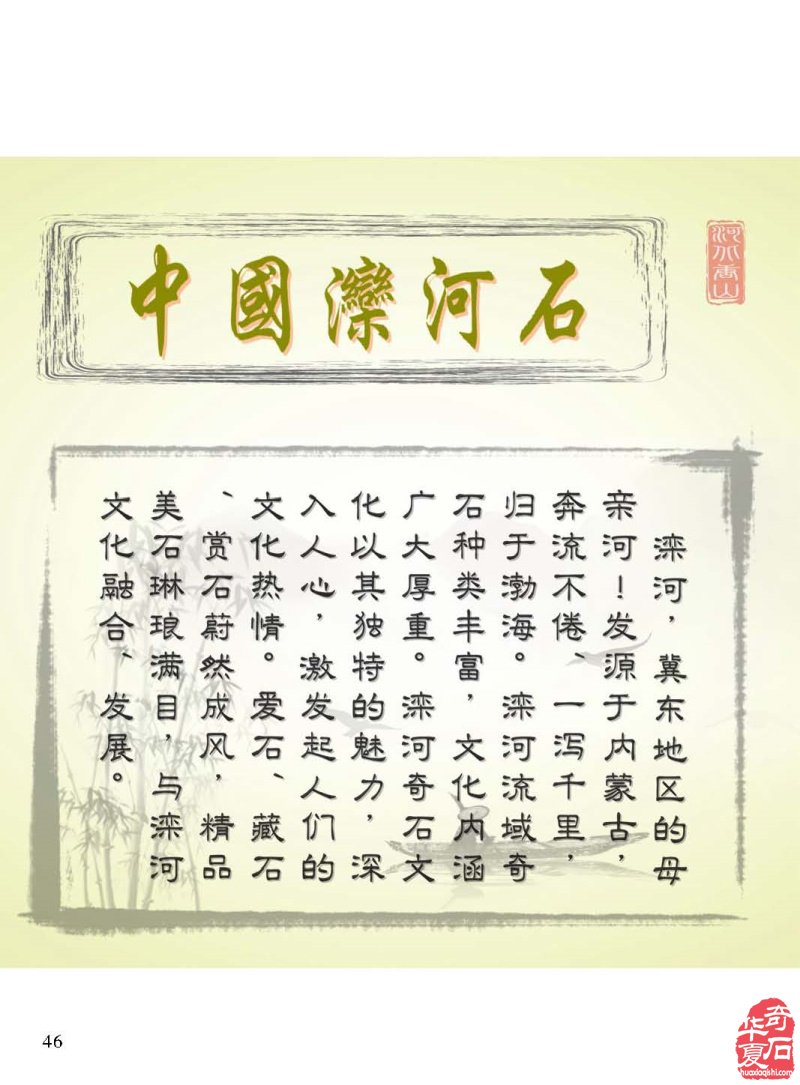 中國灤河石
河北唐山
滦河，冀东地区的母
亲河！发源于内蒙古，
奔流不倦、一泻千里，
归于渤海。滦河流域奇
石种类丰富，文化内涵
广大厚重。滦河奇石文
化以其独特的魅力，深
入人心，激发起人们的
文化热情。爱石、藏石
、赏石蔚然成风，精品
美石琳琅满目，与滦河
文化融合、发展。
46
华夏奇石
huaxiaqishi.com